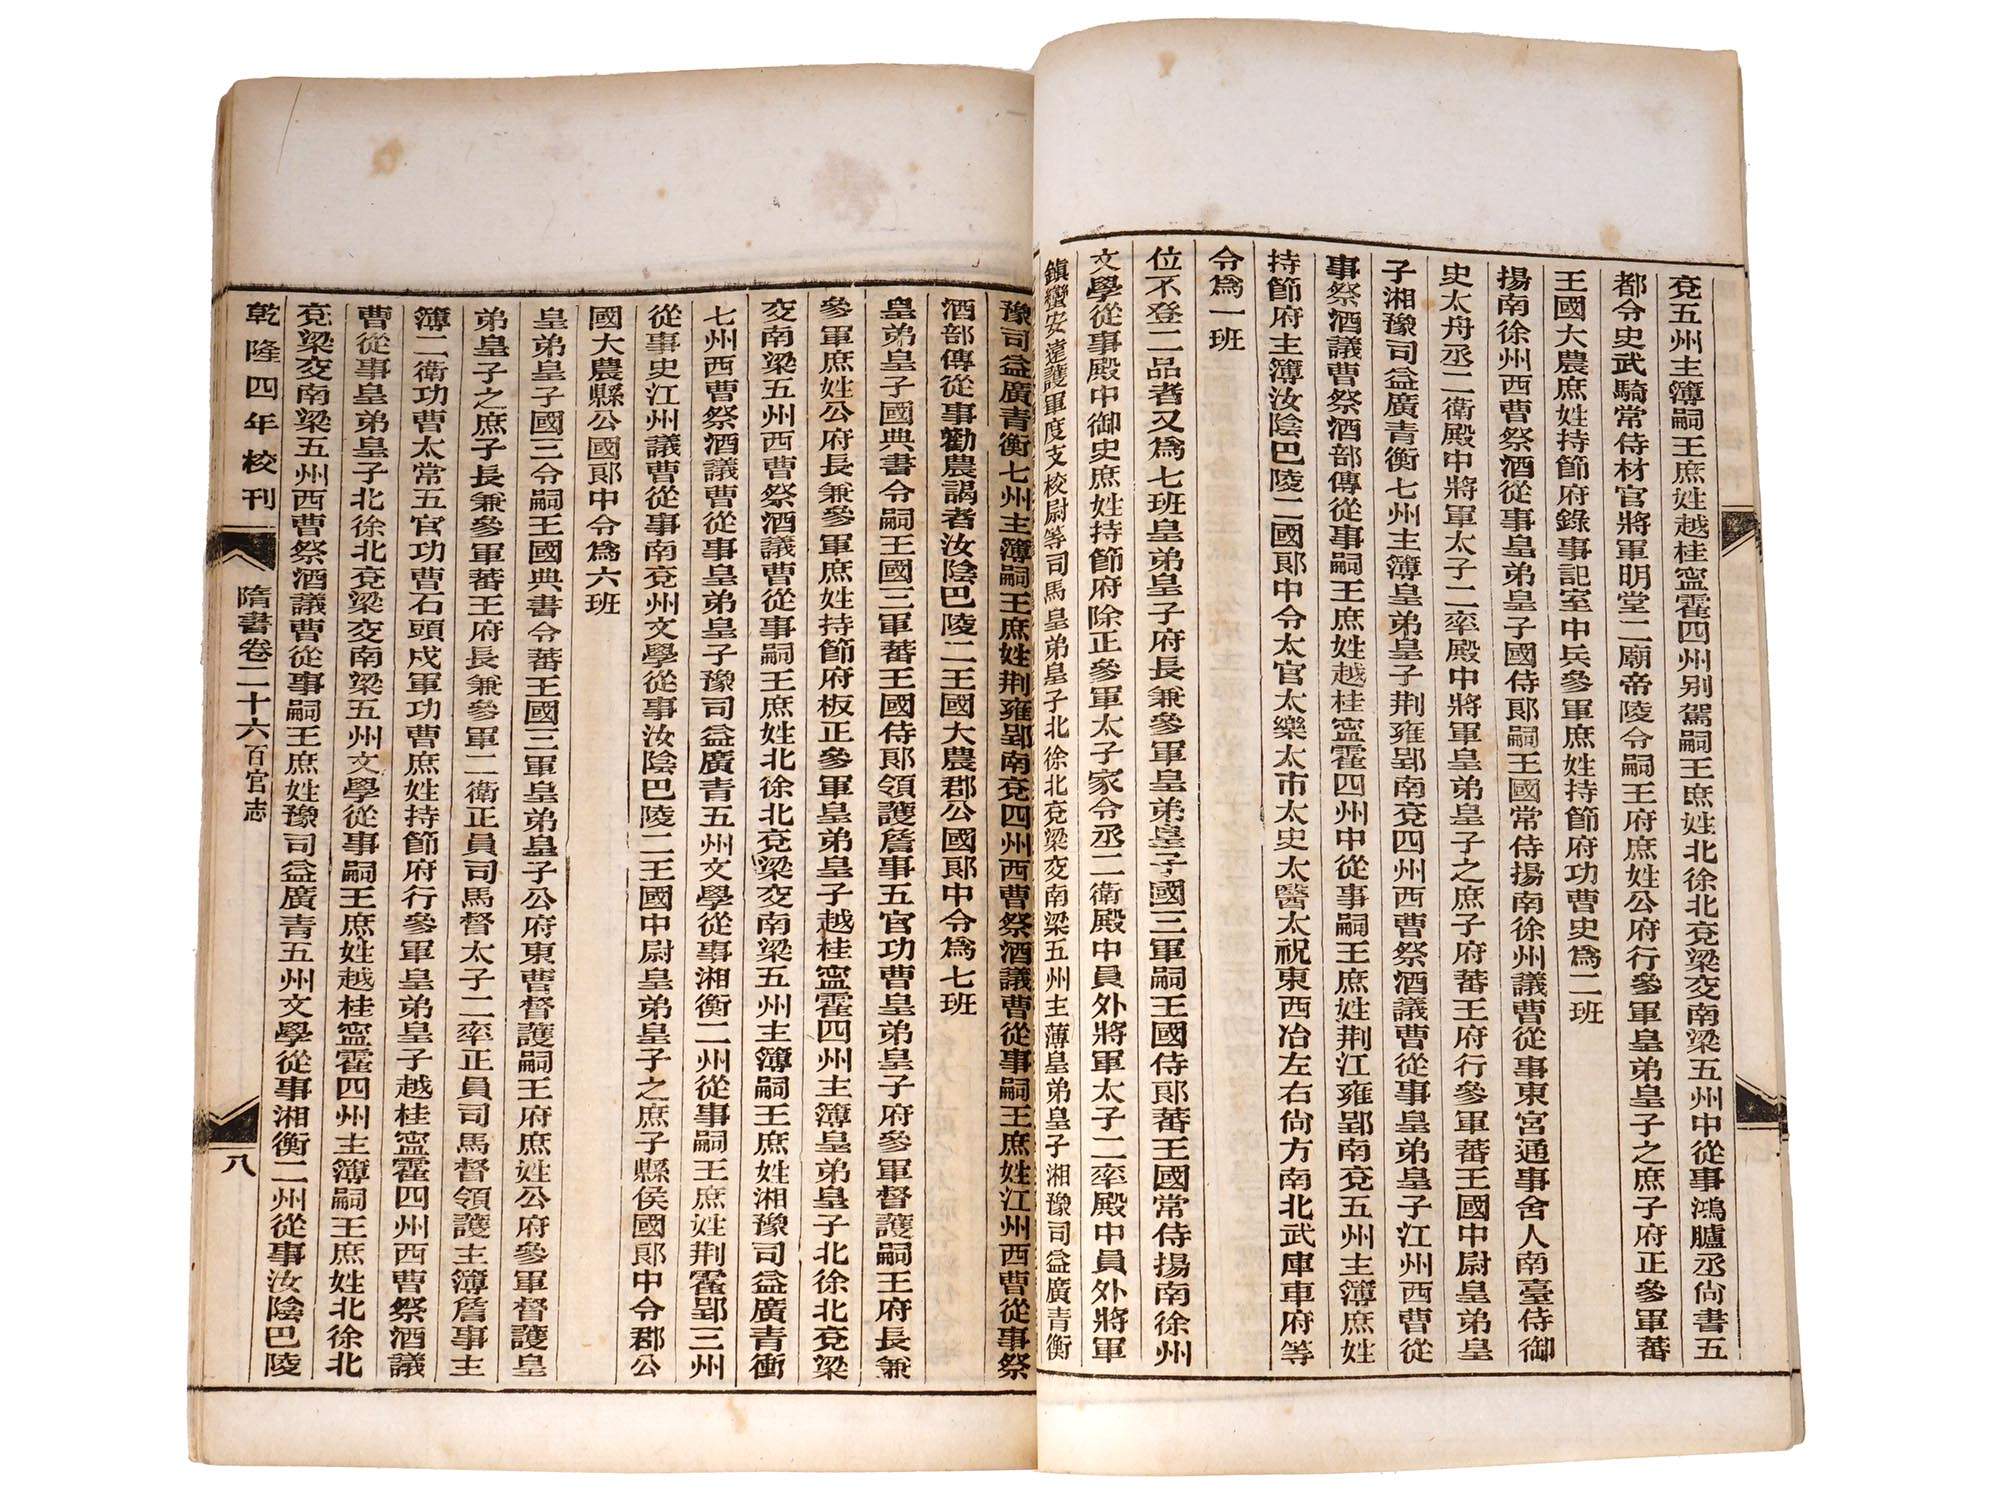 兗五州主簿嗣王庶姓越桂寧霍四州别駕嗣王庶姓北徐北兗梁交南梁五州中從事鴻臚丞尙書五
都令史武騎常侍材官將軍明堂二廟帝陵令嗣王府庶姓公府行參軍皇弟皇子之庶子府正參軍蕃
王國大農庶姓持節府錄事記室中兵參軍庶姓持節府功曹史爲二班
揚南徐州西曹祭酒從事皇弟皇子國侍郞嗣王國常侍揚南徐州議曹從事東宮通事舍人南臺侍御
史太舟丞二衛殿中將軍太子二率殿中將軍皇弟皇子之庶子府蕃王府行參軍蕃王國中尉皇弟皇
子湘豫司益廣青衡七州主簿皇弟皇子荆雍郢南兗四州西曹祭酒議曹從事皇弟皇子江州西曹從
事祭酒議曹祭酒部傳從事嗣王庶姓越桂寧霍四州中從事嗣王庶姓荆江雍郢南兗五州主簿庶姓
持節府主簿汝陰巴陵二國郞中令太官太樂太市太史太醫太祝東西冶左右尙方南北武庫車府等
令爲一班
位不登二品者又爲七班皇弟皇子府長兼參軍皇弟皇子國三軍嗣王國侍郞蕃王國常侍揚南徐州
文學從事殿中御史庶姓持節府除正參軍太子家令丞二衛殿中員外將軍太子二率殿中員外將軍
鎮蠻安遠護軍度支校尉等司馬皇弟皇子北徐北兗梁交南梁五州主薄皇弟皇子湘豫司益廣青衡
豫司益廣青衡七州主簿嗣王庶姓荆雍郢南兗四州西曹祭酒議曹從事嗣王庶姓江州西曹從事祭
酒部傳從事勸農謁者汝陰巴陵二王國大農郡公國郞中令爲七班
皇弟皇子國典書令嗣王國三軍蕃王國侍郞領護詹事五官功曹皇弟皇子府參軍督護嗣王府長兼
參軍庶姓公府長兼參軍庶姓持節府板正參軍皇弟皇子越桂寧霍四州主簿皇弟皇子北徐北兗梁
交南梁五州西曹祭酒議曹從事嗣王庶姓北徐北兗梁交南梁五州主簿嗣王庶姓湘豫司益廣青衡
七州西曹祭酒議曹從事皇弟皇子豫司益廣青五州文學從事湘衡二州從事嗣王庶姓荆霍郢三州
從事史江州議曹從事南兗州文學從事汝陰巴陵二王國中尉皇弟皇子之庶子縣侯國郞中令郡公
國大農縣公國郞中令爲六班
皇弟皇子國三令嗣王國典書令蕃王國三軍皇弟皇子公府東曹督護嗣王府庶姓公府參軍督護皇
弟皇子之庶子長兼參軍蕃王府長兼參軍二衛正員司馬督太子二率正員司馬督領護主簿詹事主
簿二衛功曹太常五官功曹石頭戍軍功曹庶姓持節府行參軍皇弟皇子越桂寧霍四州西曹祭酒議
曹從事皇弟皇子北徐北兗梁交南梁五州文學從事嗣王庶姓越桂寧霍四州主簿嗣王庶姓北徐北
兗梁交南梁五州西曹祭酒議曹從事嗣王庶姓豫司益廣青五州文學從事湘衡二州從事汝陰巴陵
乾隆四年校刊 隋書卷二十六百官志 八